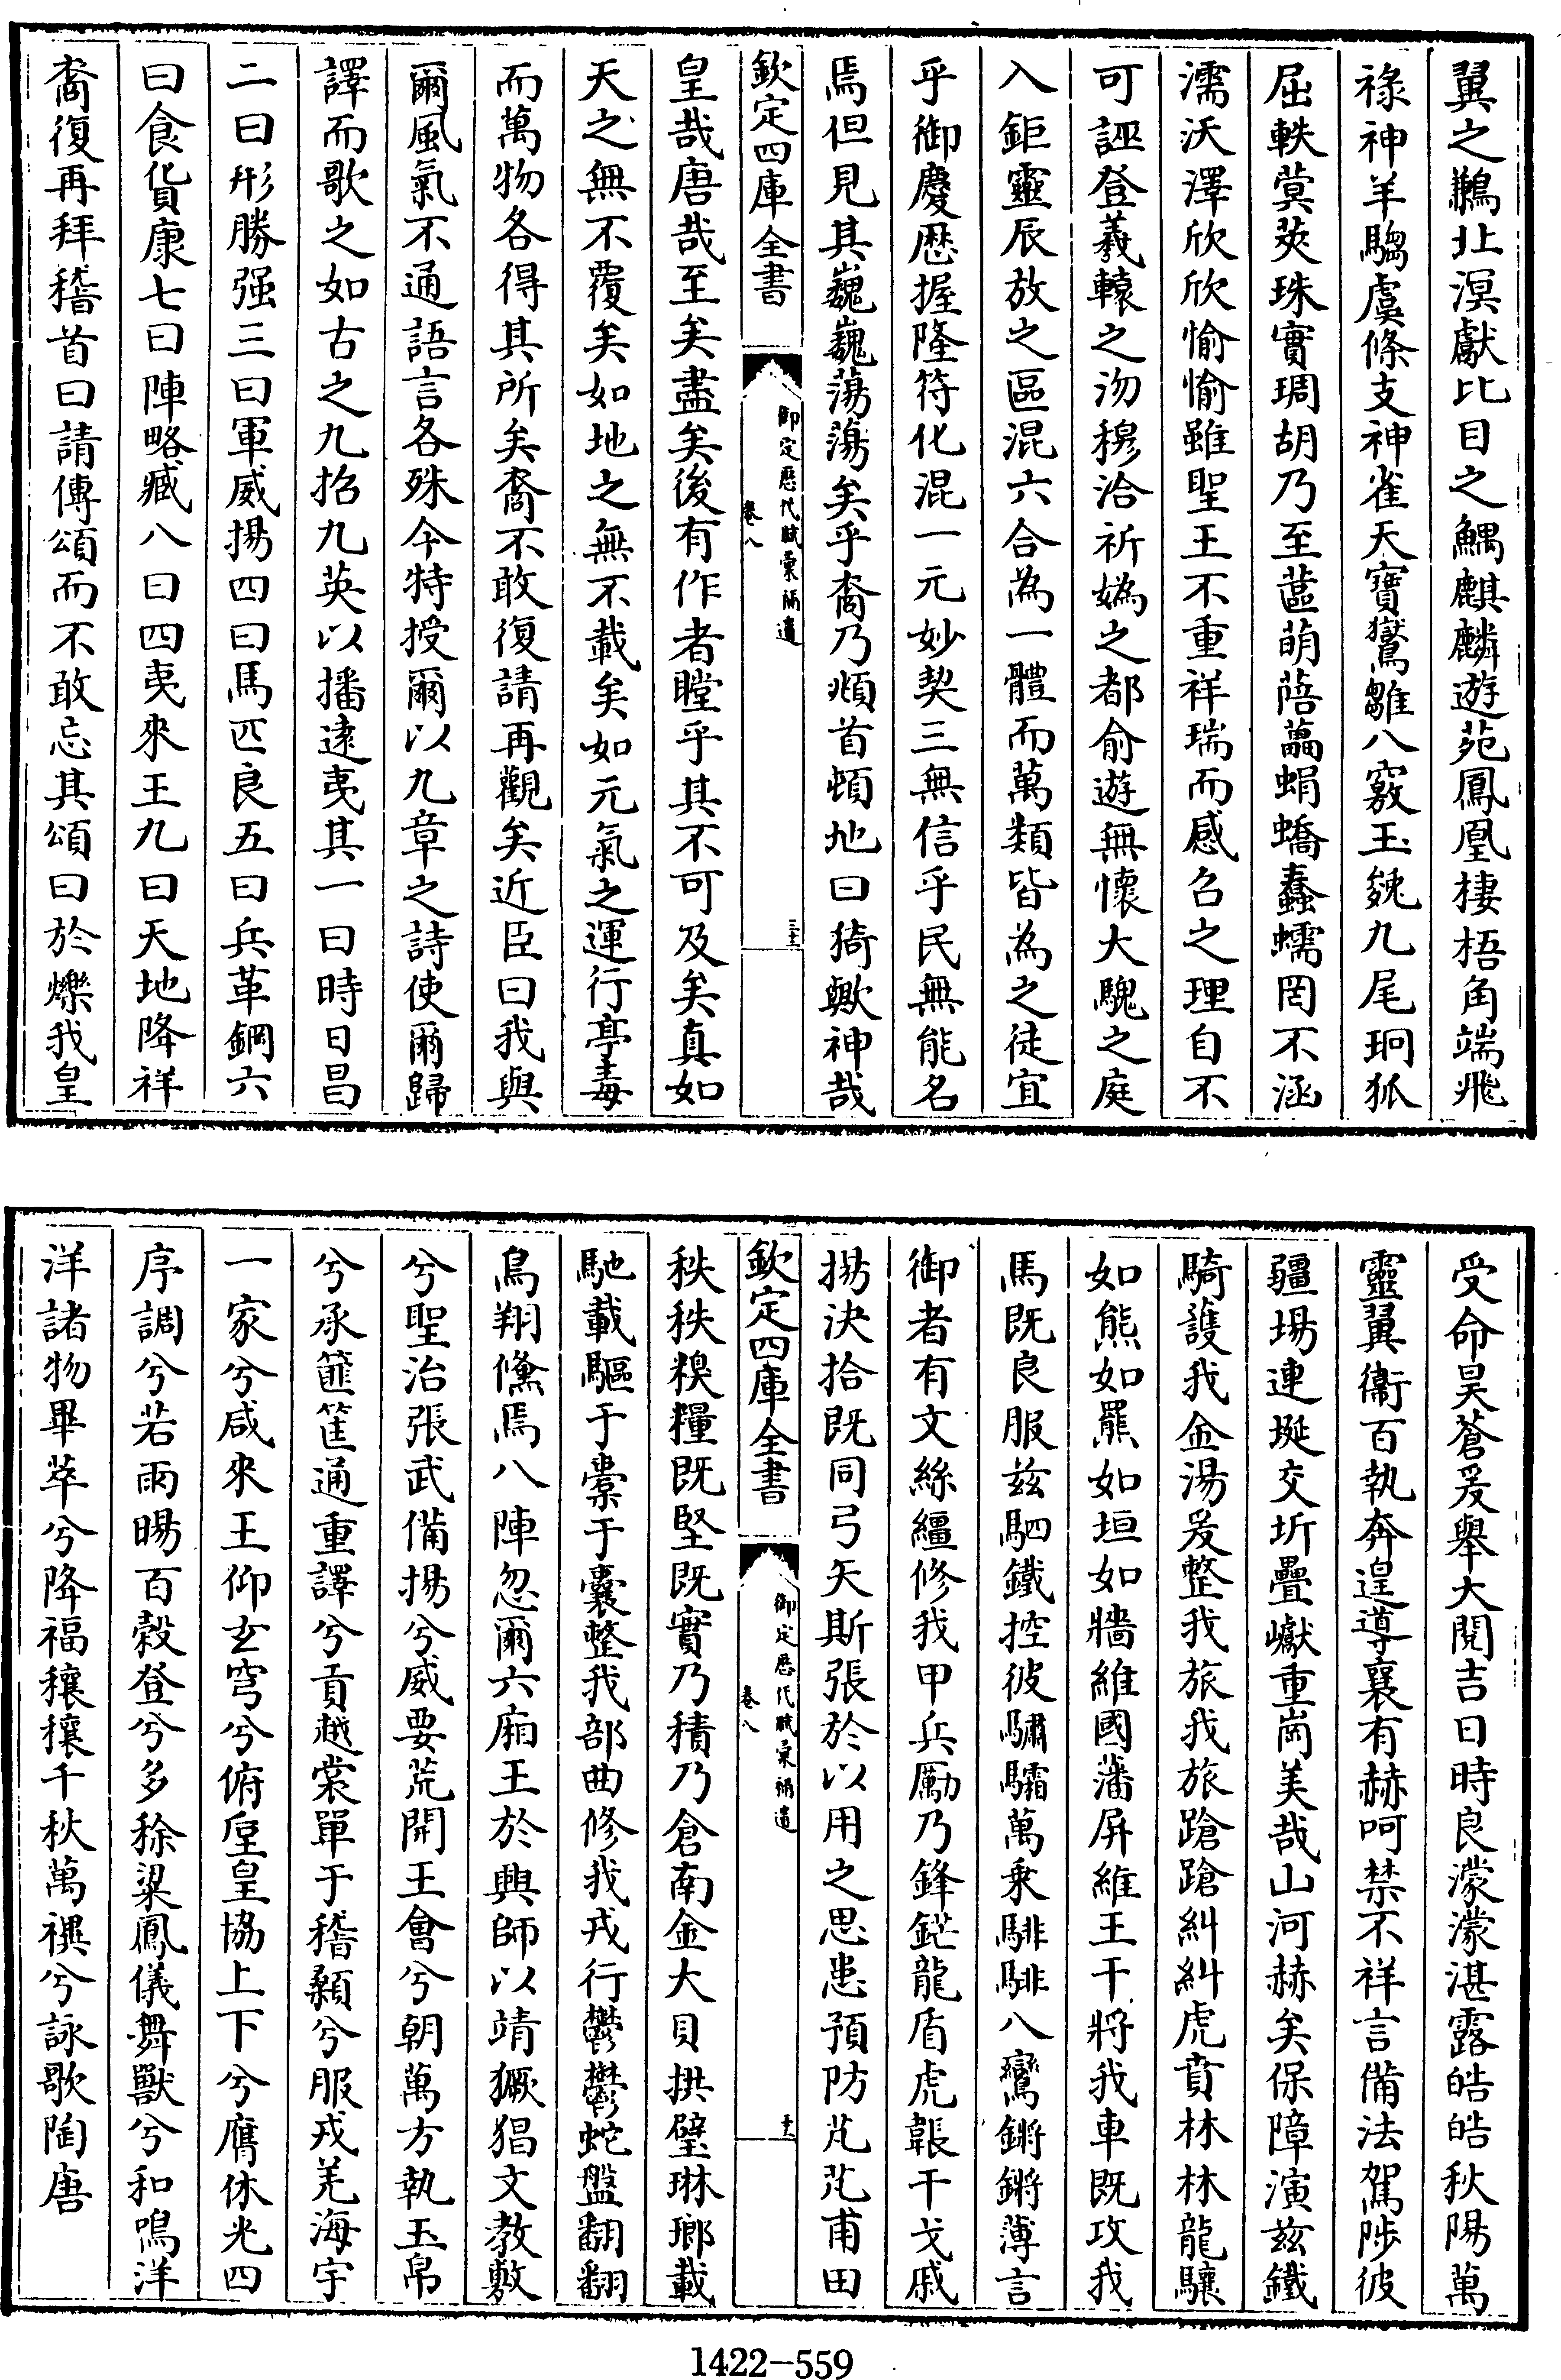 翼之鷫北溟獻比目之鰅麒麟遊苑鳳凰棲梧角端飛
祿神羊騶虞條支神雀天寶鸑雛八竅玉毚九尾玥狐
屈軼蓂莢珠實琱胡乃至蓲萌蓓藟蜎蟜蠢蠕罔不涵
濡沃澤欣欣愉愉雖聖王不重祥瑞而感召之理自不
可誣登羲轅之沕穆洽祈媯之都俞遊無懷大騩之庭
入鉅靈辰放之區混六合為一體而萬類皆為之徒宜
乎御慶歷握隆符化混一元妙契三無信乎民無能名
焉但見其巍巍蕩蕩矣乎裔乃頫首頓地曰猗歟神哉
欽定四庫全書
御定歷代賦彙補遺
卷八
三十三
皇哉唐哉至矣盡矣後有作者瞠乎其不可及矣真如
天之無不覆矣如地之無不載矣如元氣之運行亭毒
而萬物各得其所矣裔不敢復請再觀矣近臣曰我與
爾風氣不通語言各殊今特授爾以九章之詩使爾歸
譯而歌之如古之九招九英以播遠夷其一曰時日昌
二曰形勝强三曰軍威揚四曰馬匹良五曰兵革鋼六
曰食貨康七曰陣略臧八曰四夷來王九曰天地降祥
裔復再拜稽首曰請傳頌而不敢忘其頌曰於爍我皇
受命昊蒼爰舉大閱吉日時良濛濛湛露皓皓秋陽萬
靈翼衞百執奔遑遵襄有赫呵禁不祥言備法駕陟彼
疆場連埏交圻疊巘重崗美哉山河赫矣保障演茲鐵
騎護我金湯爰整我旅我旅蹌蹌糾糾虎賁林林龍驤
如熊如羆如垣如牆維國藩屏維王干將我車既攻我
馬既良服茲駟鐵控彼驌驦萬乘騑騑八鸞鏘鏘薄言
御者有文絲繮修我甲兵勵乃鋒鋩龍盾虎韔干戈戚
揚決拾既同弓矢斯張於以用之思患預防芃芃甫田
欽定四庫全書
御定歷代賦彙補遺
卷八
秩秩糗糧既堅既實乃積乃倉南金大貝拱璧琳瑯載
馳載驅于橐于囊整我部曲修我戎行鬱鬱蛇盤翩翩
鳥翔儵焉八陣忽爾六廂王於興師以靖獗猖文教敷
兮聖治張武備揚兮威要荒開王會兮朝萬方執玉帛
兮承篚筐通重譯兮貢越裳單于稽顙兮服戎羌海宇
一家兮咸來王仰玄穹兮俯垕皇協上下兮膺休光四
序調兮若雨暘百穀登兮多稌粱鳳儀舞獸兮和鳴洋
洋諸物畢萃兮降福穰穰千秋萬禩兮詠歌陶唐
1422-559